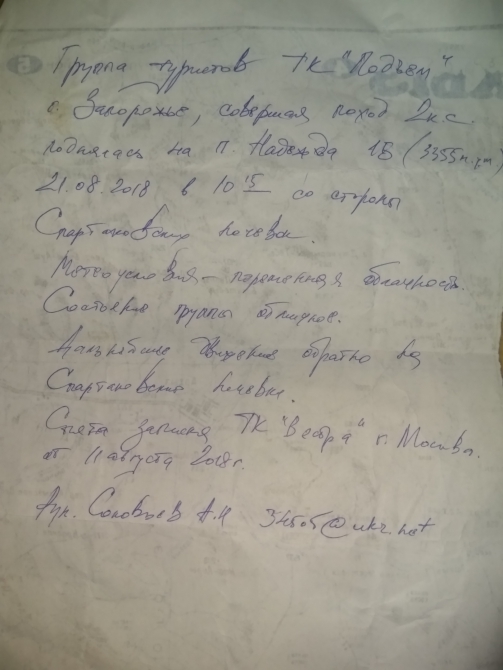 Группа туристов ТК "Подъем"
г. Запорожье, совершая поход 2 к.с.
поднялась на п. Надежда 1Б (3355м.
21.08.2018 в 10 15 со стороны
Спартаковских ночевок.
Метеоусловия - переменная облачность.
Состояние группы отличное.
Дальнейшее движение обратно на
Спартаковские ночевки.
Снята записка ТК "Вестра" г. Москвы.
от 11 августа 2018г.
Рук. Соловьев А.Н